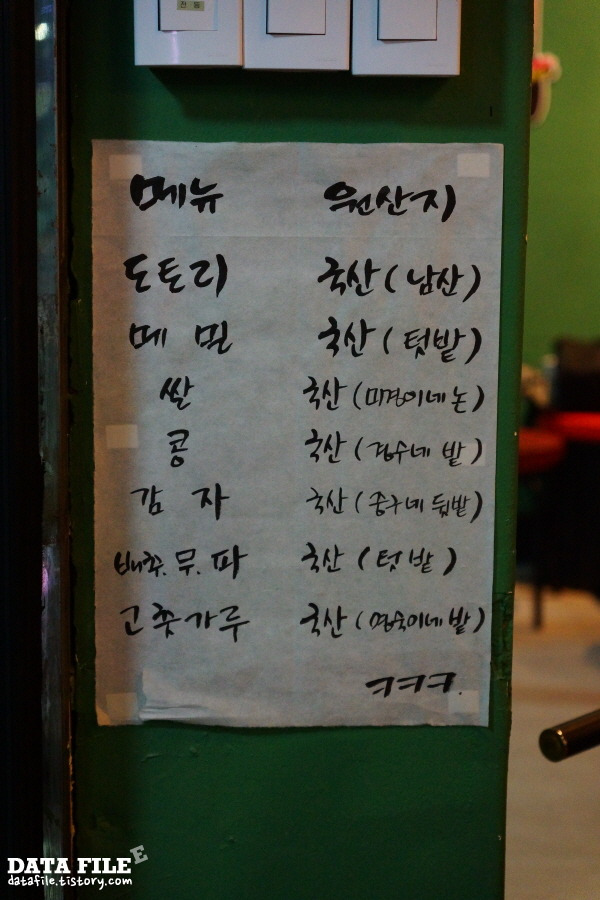 전등
메뉴 원산지
도토리 국산 (남산)
메밀 국산 (텃밭)
쌀 국산 (미경이네 논)
콩 국산 (경수네 밭)
감자 국산 (중구네 뒷밭)
배추.무.파 국산 (텃밭)
고춧가루 국산 (명숙이네 밭)
ㅋㅋㅋ.
DATA FILE
datafile.tistory.com